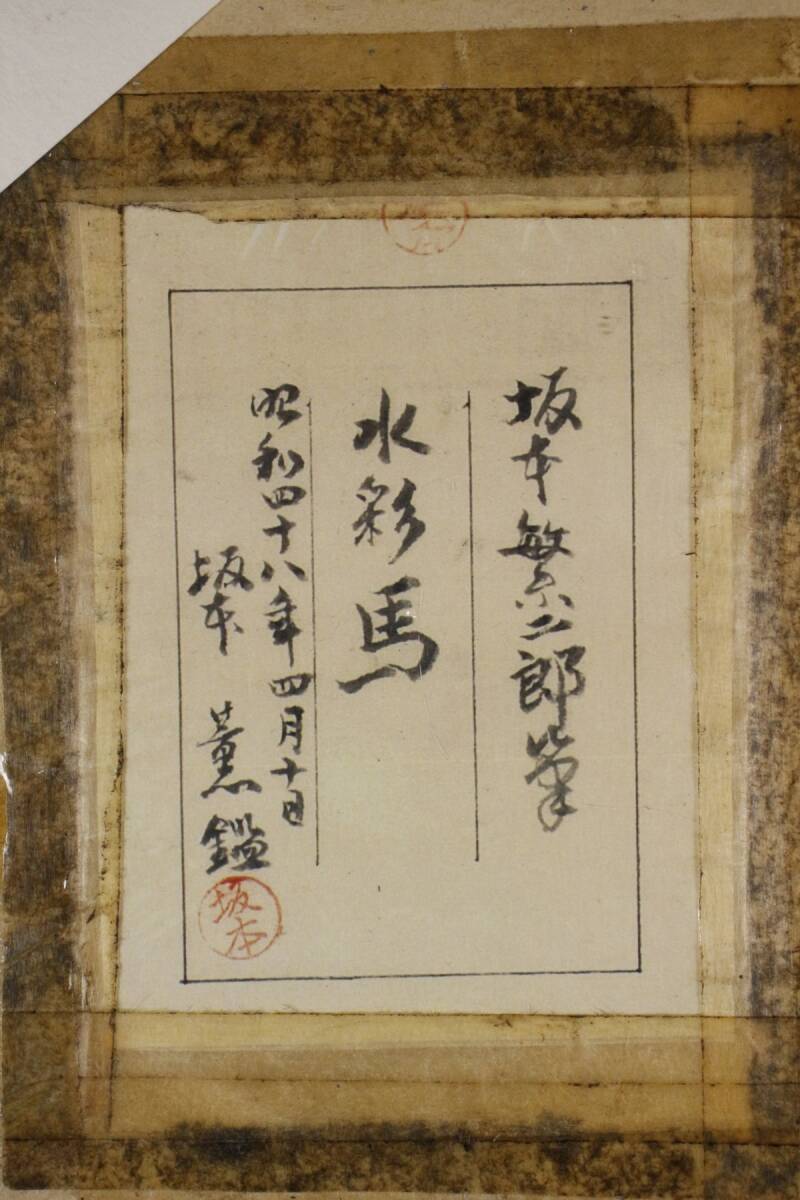 坂本繁二郎筆
水彩馬
昭和四十八年四月十日
坂本 薫鑑
坂本